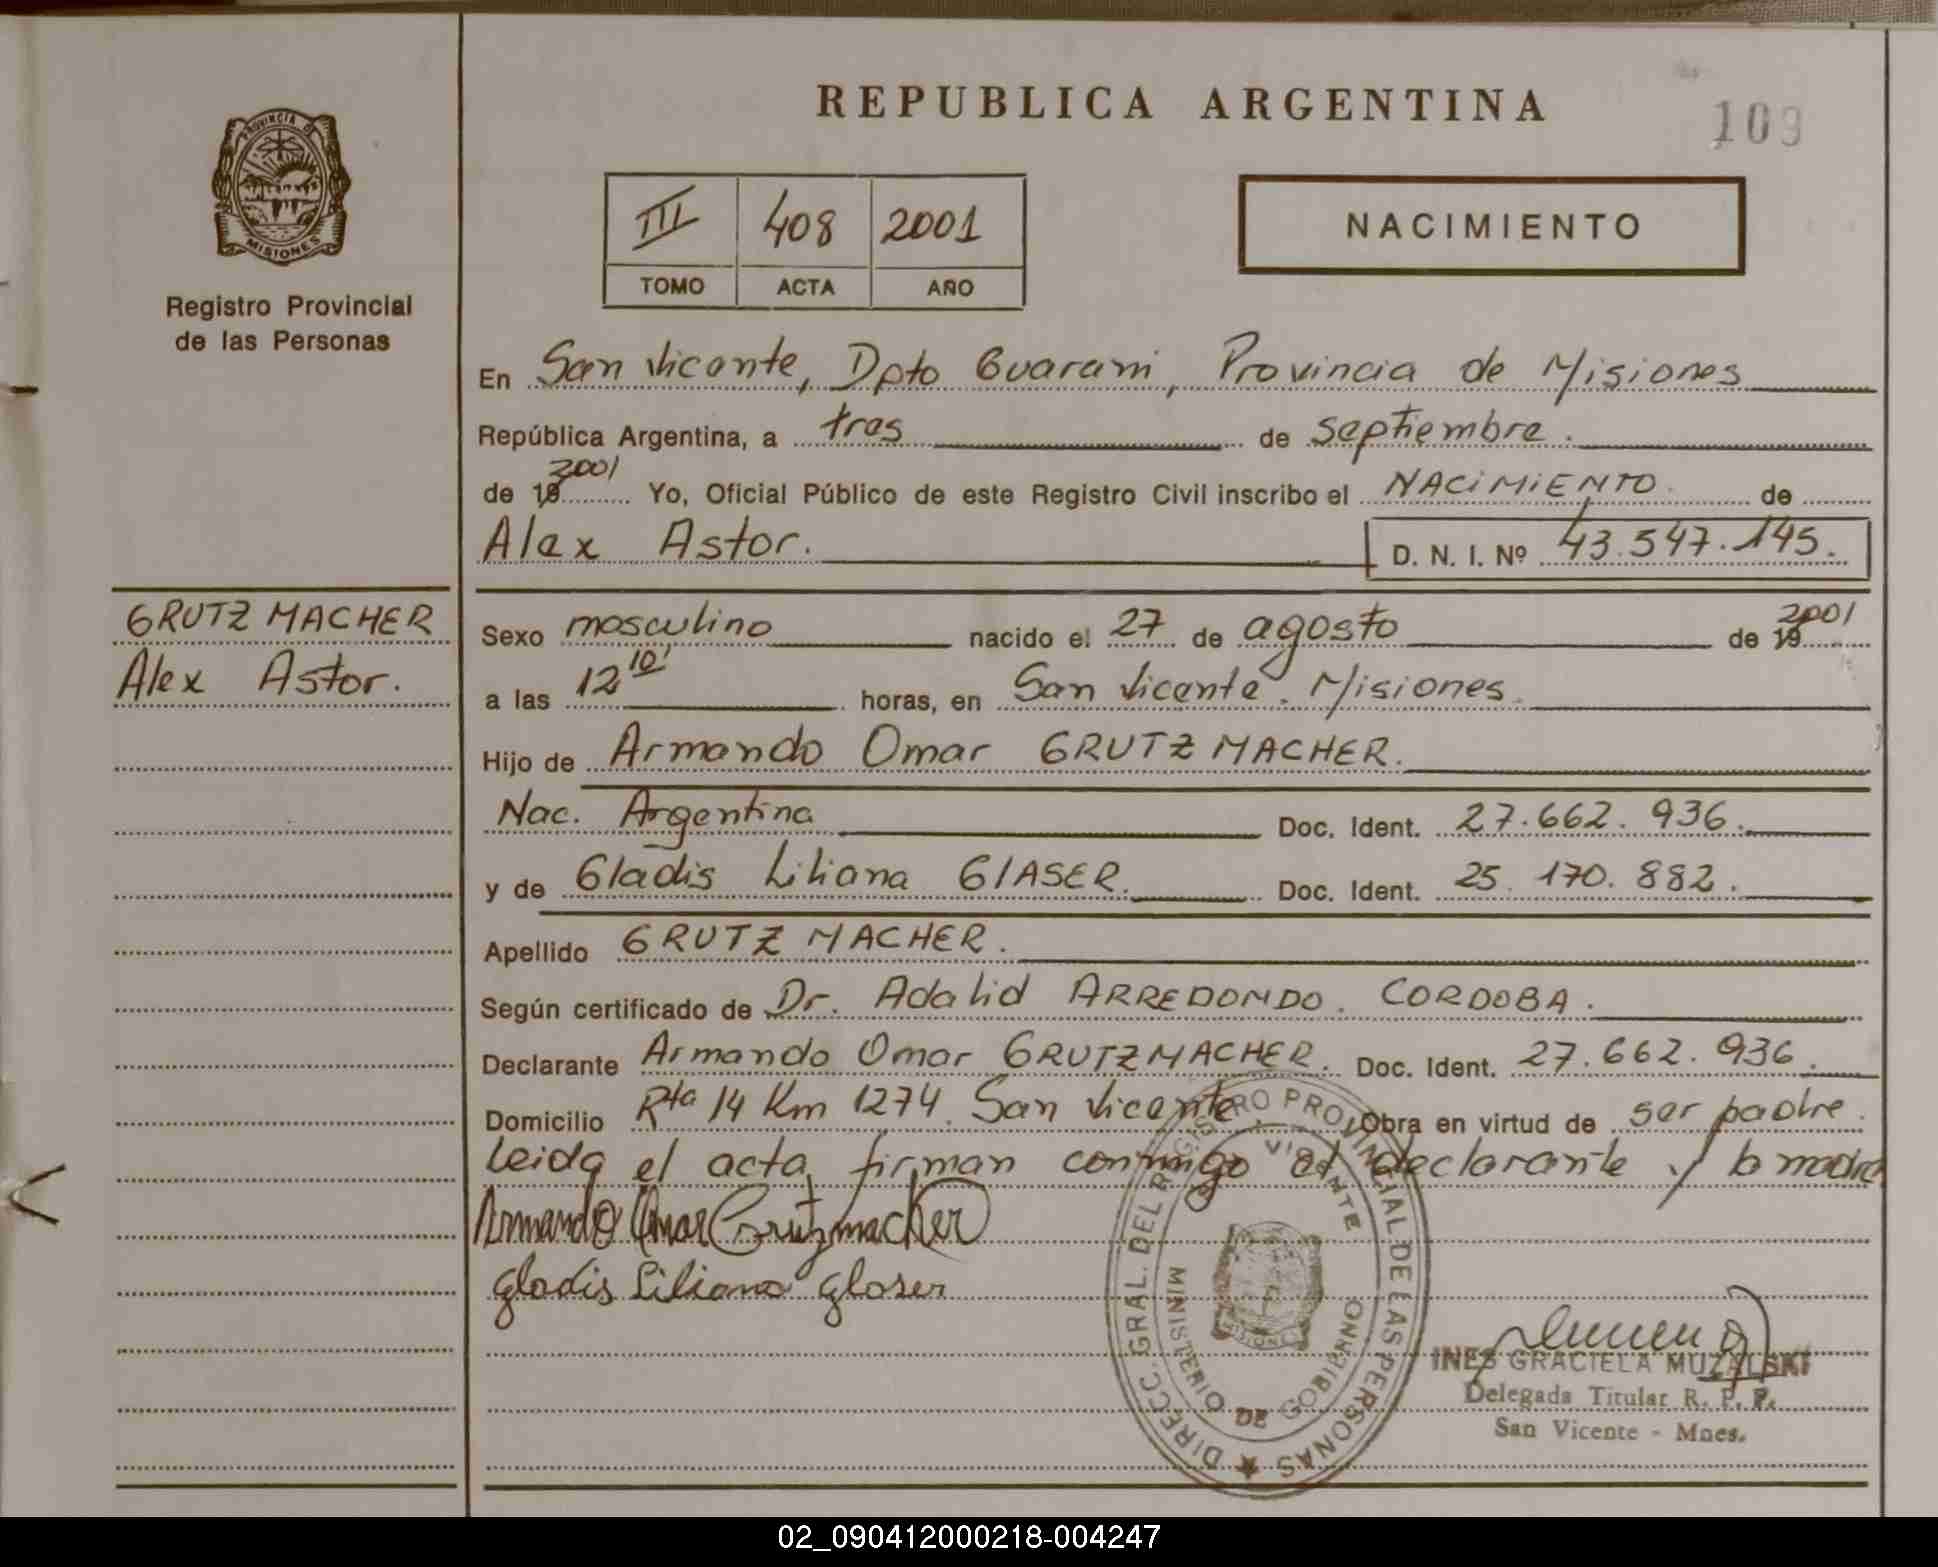 REPUBLICA ARGENTINA
109
PROVINCIA DE
MISIONES
Registro Provincial
de las Personas
III 408 2001
TOMO ACTA AÑO
NACIMIENTO
En San Vicente, Dpto Guarani, Provincia de Misiones
República Argentina, a tres de septiembre.
de 19 2001 Yo, Oficial Público de este Registro Civil inscribo el NACIMIENTO. de
Alex Astor. D. N. I. Nº 43.547.145.
GRUTZMACHER
Alex Astor.
Sexo masculino nacido el 27 de agosto de 19 2001
a las 12 10' horas, en San Vicente. Misiones.
Hijo de Armando Omar GRUTZMACHER.
Nac. Argentina Doc. Ident. 27.662.936.
y de Gladis Liliana GlASER. Doc. Ident. 25.170.882.
Apellido GRUTZMACHER.
Según certificado de Dr. Adalid ARREDONDO. CORDOBA.
Declarante Armando Omar GRUTZMACHER. Doc. Ident. 27.662.936.
Domicilio Rta 14 Km 1274. San Vicente Obra en virtud de ser padre.
Leida el acta, firman conmigo el declarante y la madre
Armando Omar Grutzmacher
Gladis Liliana Glaser
DIRECC. GRAL. DEL REGISTRO PROVINCIAL DE LAS PERSONAS
MINISTERIO DE GOBIERNO
INES GRACIELA MUZALSKI
Delegada Titular R. P. P.
San Vicente - Mnes.
02_090412000218-004247